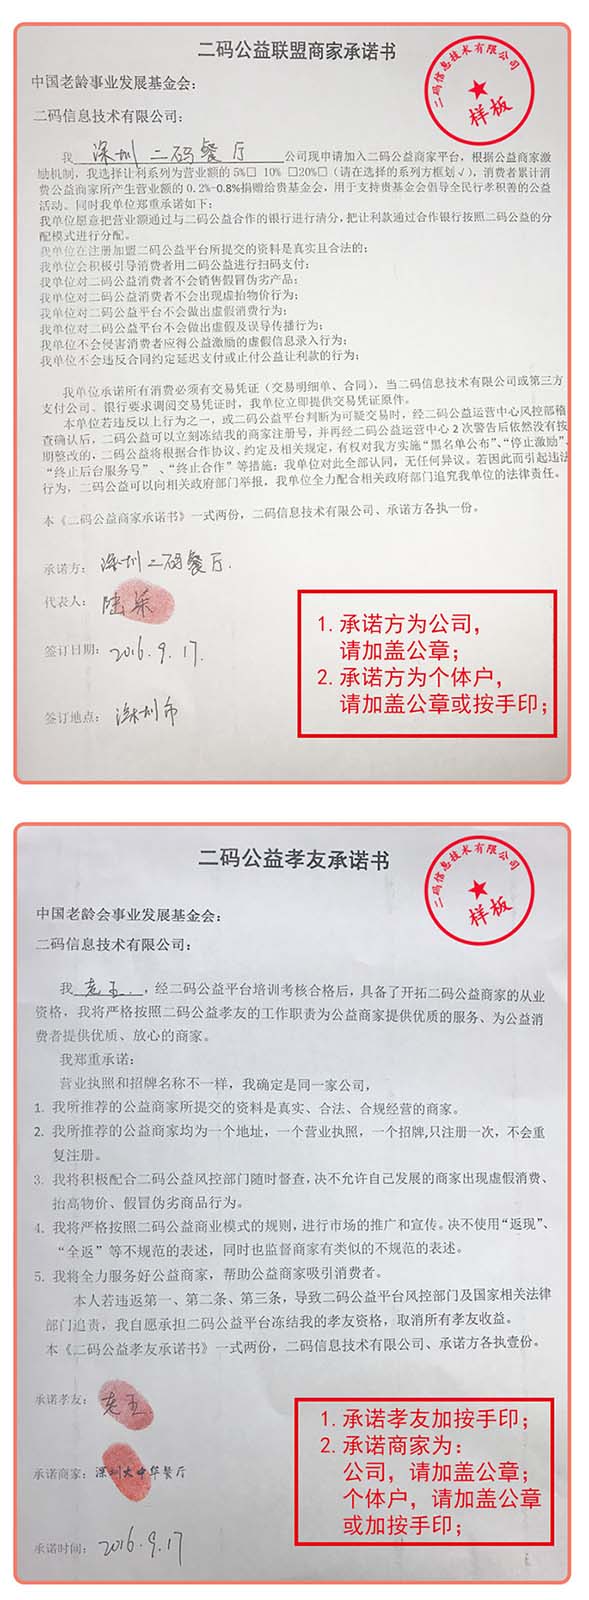 二码公益联盟商家承诺书
二码信息技术有限公司
样板
中国老龄事业发展基金会：
二码信息技术有限公司：
我 深圳二码餐厅 公司现申请加入二码公益商家平台，根据公益商家激
励机制，我选择让利系列为营业额的 5%□ 10% □20%□（请在选择的系列方框划√），消费者累计消
费公益商家所产生营业额的 0.2%-0.8%捐赠给贵基金会，用于支持贵基金会倡导全民行孝积善的公益
活动。同时我单位郑重承诺如下：
我单位愿意把营业额通过与二码公益合作的银行进行清分，把让利款通过合作银行按照二码公益的分
配模式进行分配。
我单位在注册加盟二码公益平台所提交的资料是真实且合法的；
我单位会积极引导消费者用二码公益进行扫码支付；
我单位对二码公益消费者不会销售假冒伪劣产品；
我单位对二码公益消费者不会出现虚抬物价行为；
我单位对二码公益平台不会做出虚假消费行为；
我单位对二码公益平台不会做出虚假及误导传播行为；
我单位不会侵害消费者应得公益激励的虚假信息录入行为；
我单位不会违反合同约定延迟支付或止付公益让利款的行为；
我单位承诺所有消费必须有交易凭证（交易明细单、合同），当二码信息技术有限公司或第三方
支付公司、银行要求调阅交易凭证时，我单位立即提供交易凭证原件。
本单位若违反以上行为之一，或二码公益平台判断为可疑交易时，经二码公益运营中心风控部稽
查确认后，二码公益可以立刻冻结我的商家注册号，并再经二码公益运营中心 2 次警告后依然没有按
期整改的，二码公益将根据合作协议、约定及相关规定，有权对我方实施“黑名单公布”、“停止激励”、
“终止后台服务号”、“终止合作”等措施；我单位对此全部认同，无任何异议。若因此而引起违法
行为，二码公益可以向相关政府部门举报，我单位全力配合相关政府部门追究我单位的法律责任。
本《二码公益商家承诺书》一式两份，二码信息技术有限公司、承诺方各执一份。
承诺方： 深圳二码餐厅.
代表人： 陆
签订日期： 2016.9.17.
签订地点： 深圳市
1. 承诺方为公司，
请加盖公章；
2. 承诺方为个体户，
请加盖公章或按手印；
二码公益孝友承诺书
二码信息技术有限公司
样板
中国老龄会事业发展基金会：
二码信息技术有限公司：
我 老王. ，经二码公益平台培训考核合格后，具备了开拓二码公益商家的从业
资格，我将严格按照二码公益孝友的工作职责为公益商家提供优质的服务、为公益消
费者提供优质、放心的商家。
我郑重承诺：
营业执照和招牌名称不一样，我确定是同一家公司，
1. 我所推荐的公益商家所提交的资料是真实、合法、合规经营的商家。
2. 我所推荐的公益商家均为一个地址，一个营业执照，一个招牌,只注册一次，不会重
复注册。
3. 我将积极配合二码公益风控部门随时督查，决不允许自己发展的商家出现虚假消费、
抬高物价、假冒伪劣商品行为。
4. 我将严格按照二码公益商业模式的规则，进行市场的推广和宣传。决不使用“返现”、
“全返”等不规范的表述，同时也监督商家有类似的不规范的表述。
5. 我将全力服务好公益商家，帮助公益商家吸引消费者。
本人若违返第一、第二条、第三条，导致二码公益平台风控部门及国家相关法律
部门追责，我自愿承担二码公益平台冻结我的孝友资格，取消所有孝友收益。
本《二码公益孝友承诺书》一式两份，二码信息技术有限公司、承诺方各执壹份。
承诺孝友： 老王
承诺商家： 深圳大中华餐厅
承诺时间： 2016.9.17
1. 承诺孝友加按手印；
2. 承诺商家为：
公司，请加盖公章；
个体户，请加盖公章
或加按手印；